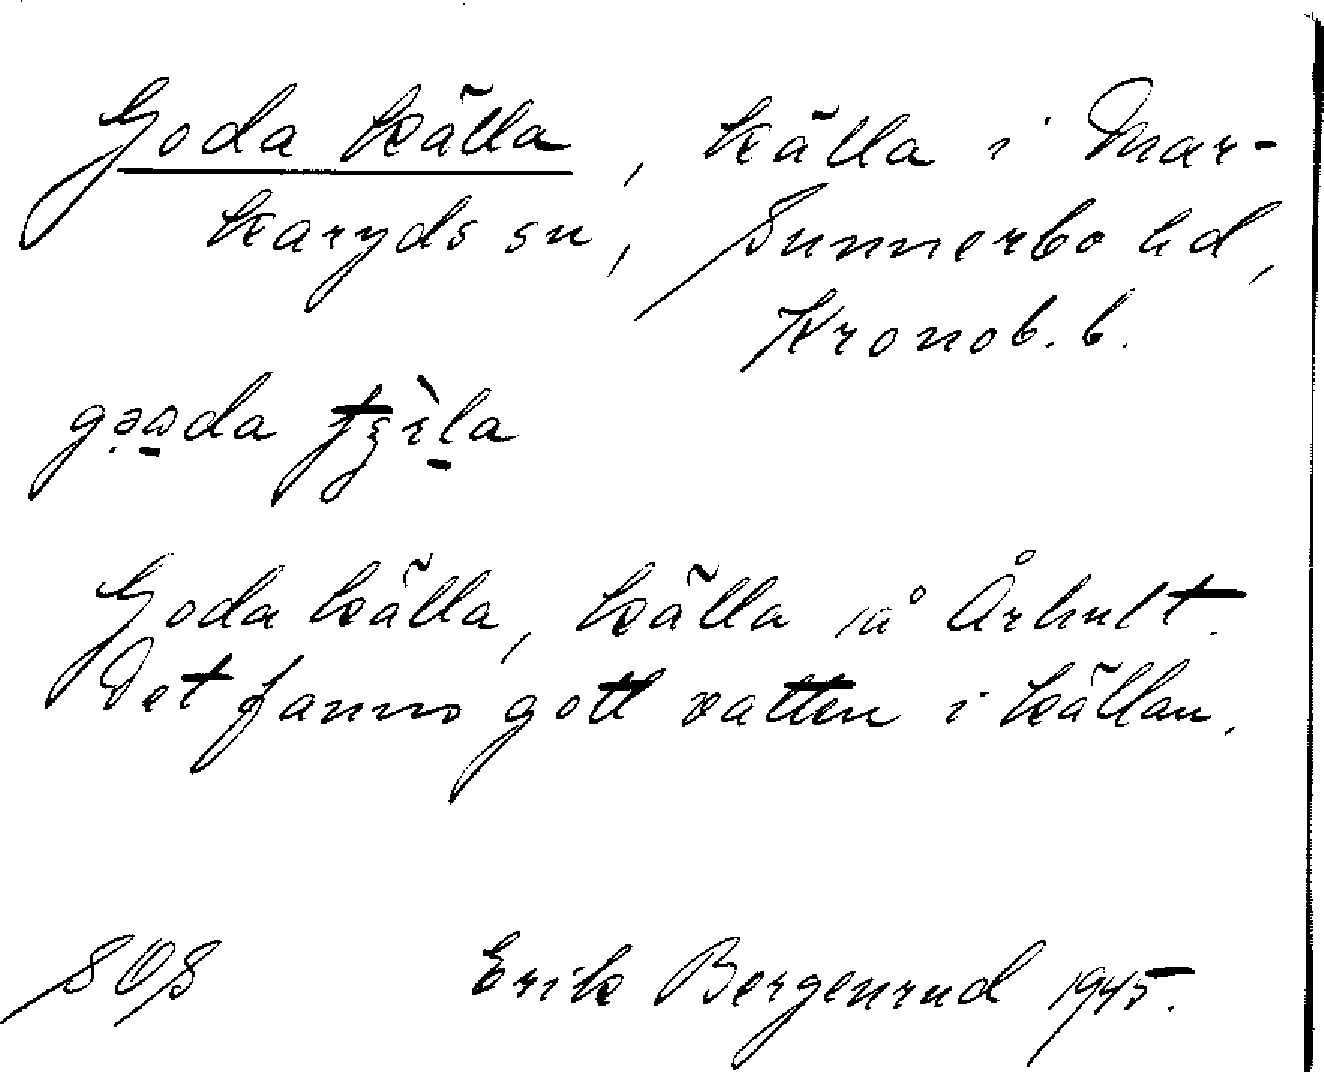 Goda källa, källa i Mar-
karyds sn, Sunnerbo hd,
Kronob. b.
Goda källa, källa på Århult.
Det fanns gott vatten i källan.
SOS Erik Bergenrud 1945.